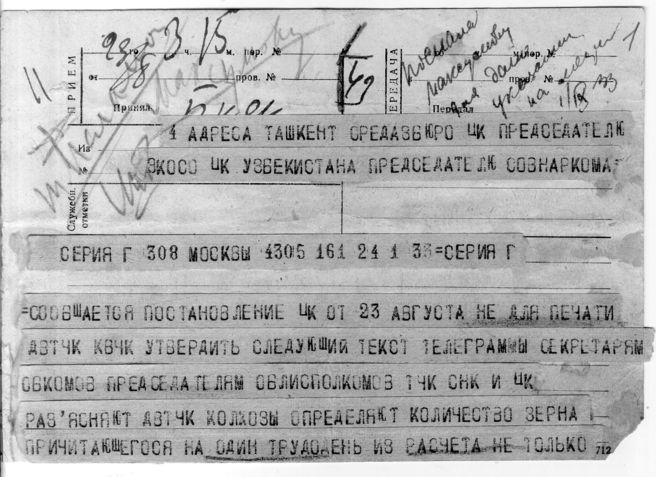 ПРИЕМ
го ч. м. пер. №
от пров. №
Принял
ПЕРЕДАЧА
пер. №
пров. №
Передал
Послана
Максумову
для дачи
указаний
на места
Из
№
Служебн. отметки
4 АДРЕСА ТАШКЕНТ СРЕДАЗБЮРО ЦК ПРЕДСЕДАТЕЛЮ
ЭКОСО ЦК УЗБЕКИСТАНА ПРЕДСЕДАТЕЛЮ СОВНАРКОМА=
СЕРИЯ Г 308 МОСКВЫ 4305 161 24 1 35=СЕРИЯ Г
=СООБЩАЕТСЯ ПОСТАНОВЛЕНИЕ ЦК ОТ 23 АВГУСТА НЕ ДЛЯ ПЕЧАТИ
ДВТЧК КВЧК УТВЕРДИТЬ СЛЕДУЮЩИЙ ТЕКСТ ТЕЛЕГРАММЫ СЕКРЕТАРЯМ
ОБКОМОВ ПРЕДСЕДАТЕЛЯМ ОБЛИСПОЛКОМОВ ТЧК СНК И ЦК
РАЗ'ЯСНЯЮТ ДВТЧК КОЛХОЗЫ ОПРЕДЕЛЯЮТ КОЛИЧЕСТВО ЗЕРНА
ПРИЧИТАЮЩЕГОСЯ НА ОДИН ТРУДОДЕНЬ ИЗ РАСЧЕТА НЕ ТОЛЬКО 712